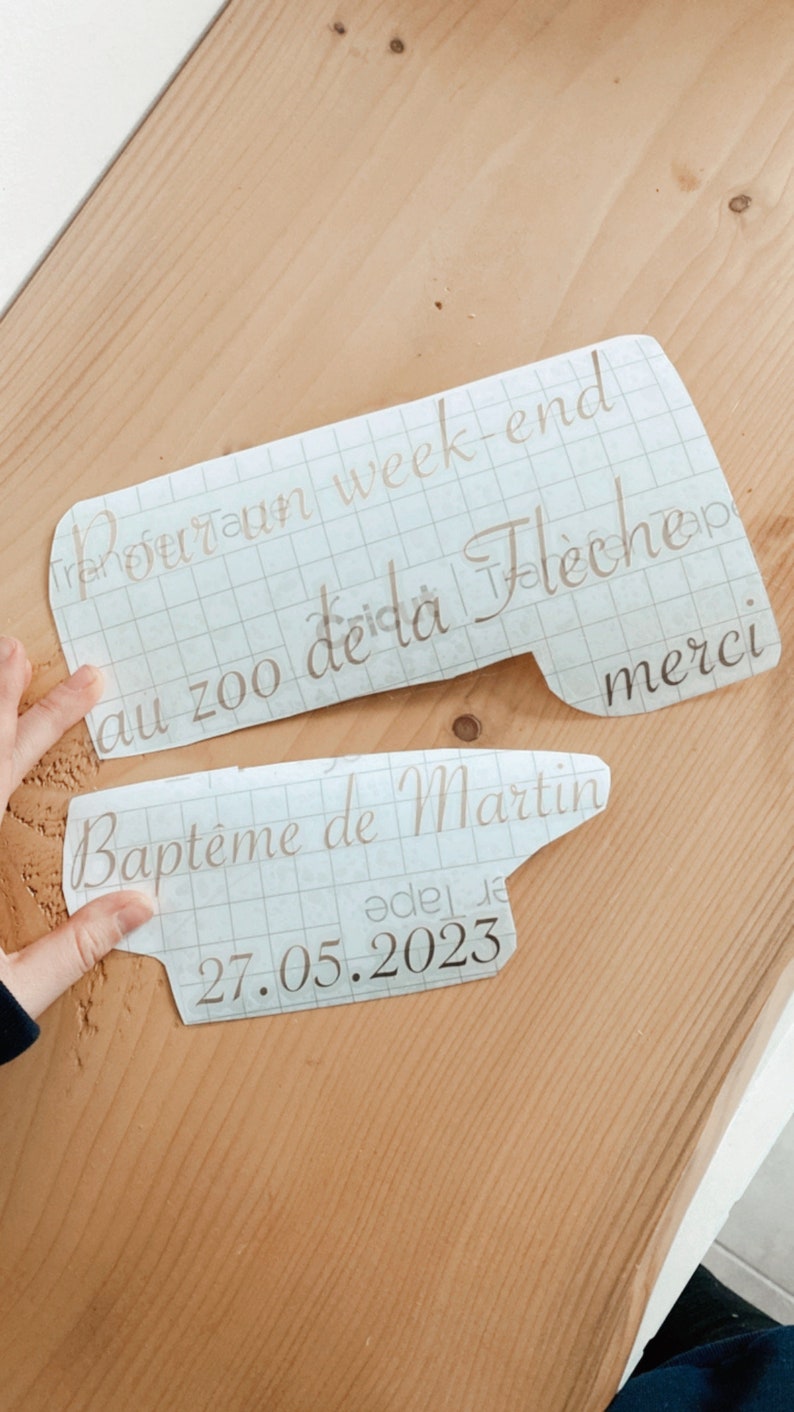 Pour un week-end
Transfer Tape
au zoo de la Flèche
Cricut | Transfer Tape
merci
Baptême de Martin
er Tape
27.05.2023